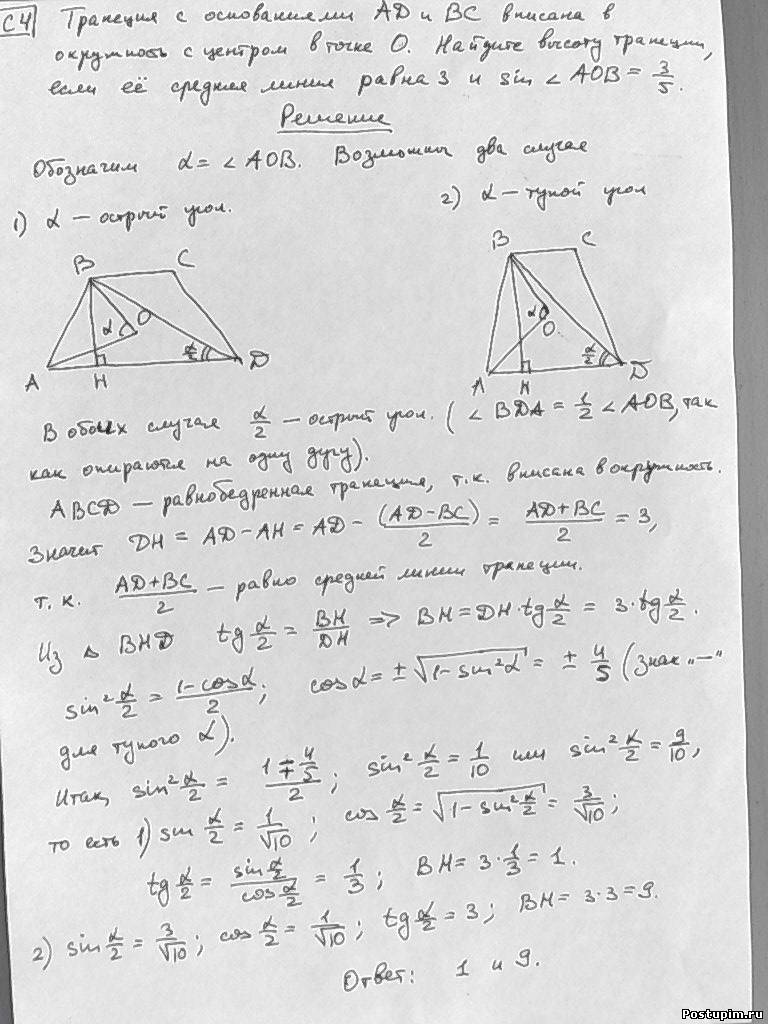 C4 Трапеция с основаниями AD и BC вписана в
окружность с центром в точке O. Найдите высоту трапеции,
если её средняя линия равна 3 и sin ∠ AOB = 3/5.
Решение
Обозначим α = ∠ AOB. Возможны два случая
1) α — острый угол.
2) α — тупой угол
B C
O
α
α/2
A H D
B C
α
O
α/2
A H D
В обоих случая α/2 — острый угол. (∠ BDA = 1/2 ∠ AOB, так
как опираются на одну дугу).
ABCD — равнобедренная трапеция, т.к. вписана в окружность.
Значит DH = AD - AH = AD - (AD - BC)/2 = (AD + BC)/2 = 3,
т. к. (AD + BC)/2 — равно средней линии трапеции.
Из Δ BHD tg α/2 = BH/DH => BH = DH·tg α/2 = 3·tg α/2.
sin² α/2 = (1 - cos α)/2; cos α = ± √(1 - sin² α) = ± 4/5 (знак „—“
для тупого α).
Итак, sin² α/2 = (1 ∓ 4/5)/2; sin² α/2 = 1/10 или sin² α/2 = 9/10,
то есть 1) sin α/2 = 1/√10; cos α/2 = √(1 - sin² α/2) = 3/√10;
tg α/2 = (sin α/2)/(cos α/2) = 1/3; BH = 3·1/3 = 1.
2) sin α/2 = 3/√10; cos α/2 = 1/√10; tg α/2 = 3; BH = 3·3 = 9.
Ответ: 1 и 9.
Postupim.ru